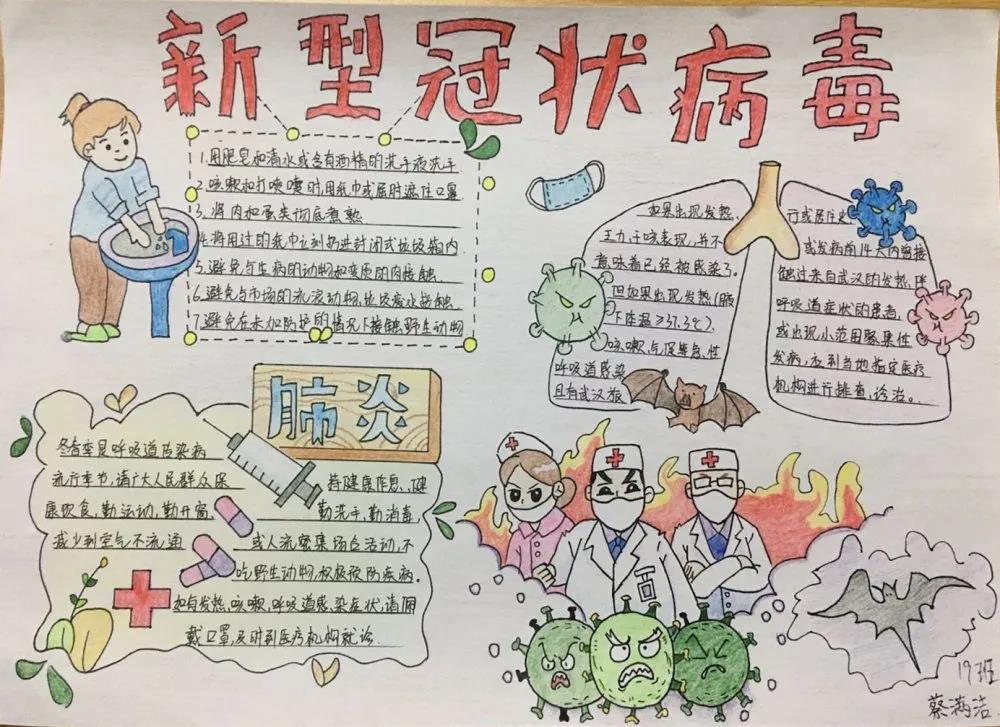 新型冠状病毒
1.用肥皂和清水或含有酒精的洗手液洗手
2.咳嗽和打喷嚏时,用纸巾或屈肘遮住口鼻
3、将肉和蛋类彻底煮熟
4.将用过的纸巾立刻扔进封闭式垃圾箱内
5.避免与生病的动物和变质的肉接触
6.避免与市场的流浪动物,垃圾废水接触
7.避免在未加防护的情况下接触野生动物
如果出现发热、
乏力,干咳表现,并不
意味着已经被感染了。
但如果出现发热(腋
下体温≥37.3℃)、
咳嗽、气促等急性
呼吸道感染
且有武汉旅
行或居住史
或发病前14天内曾接
触过来自武汉的发热,伴
呼吸道症状的患者,
或出现小范围聚集性
发病,应到当地指定医疗
机构进行排查、诊治。
肺炎
冬春季是呼吸道传染病
流行季节,请广大人民群众保
持健康作息、健
康饮食,勤运动,勤开窗,
勤洗手,勤消毒,
减少到空气不流通
或人流密集场合活动,不
吃野生动物,积极预防疾病。
如有发热,咳嗽,呼吸道感染症状,请佩
戴口罩,及时到医疗机构就诊
19班
蔡满洁